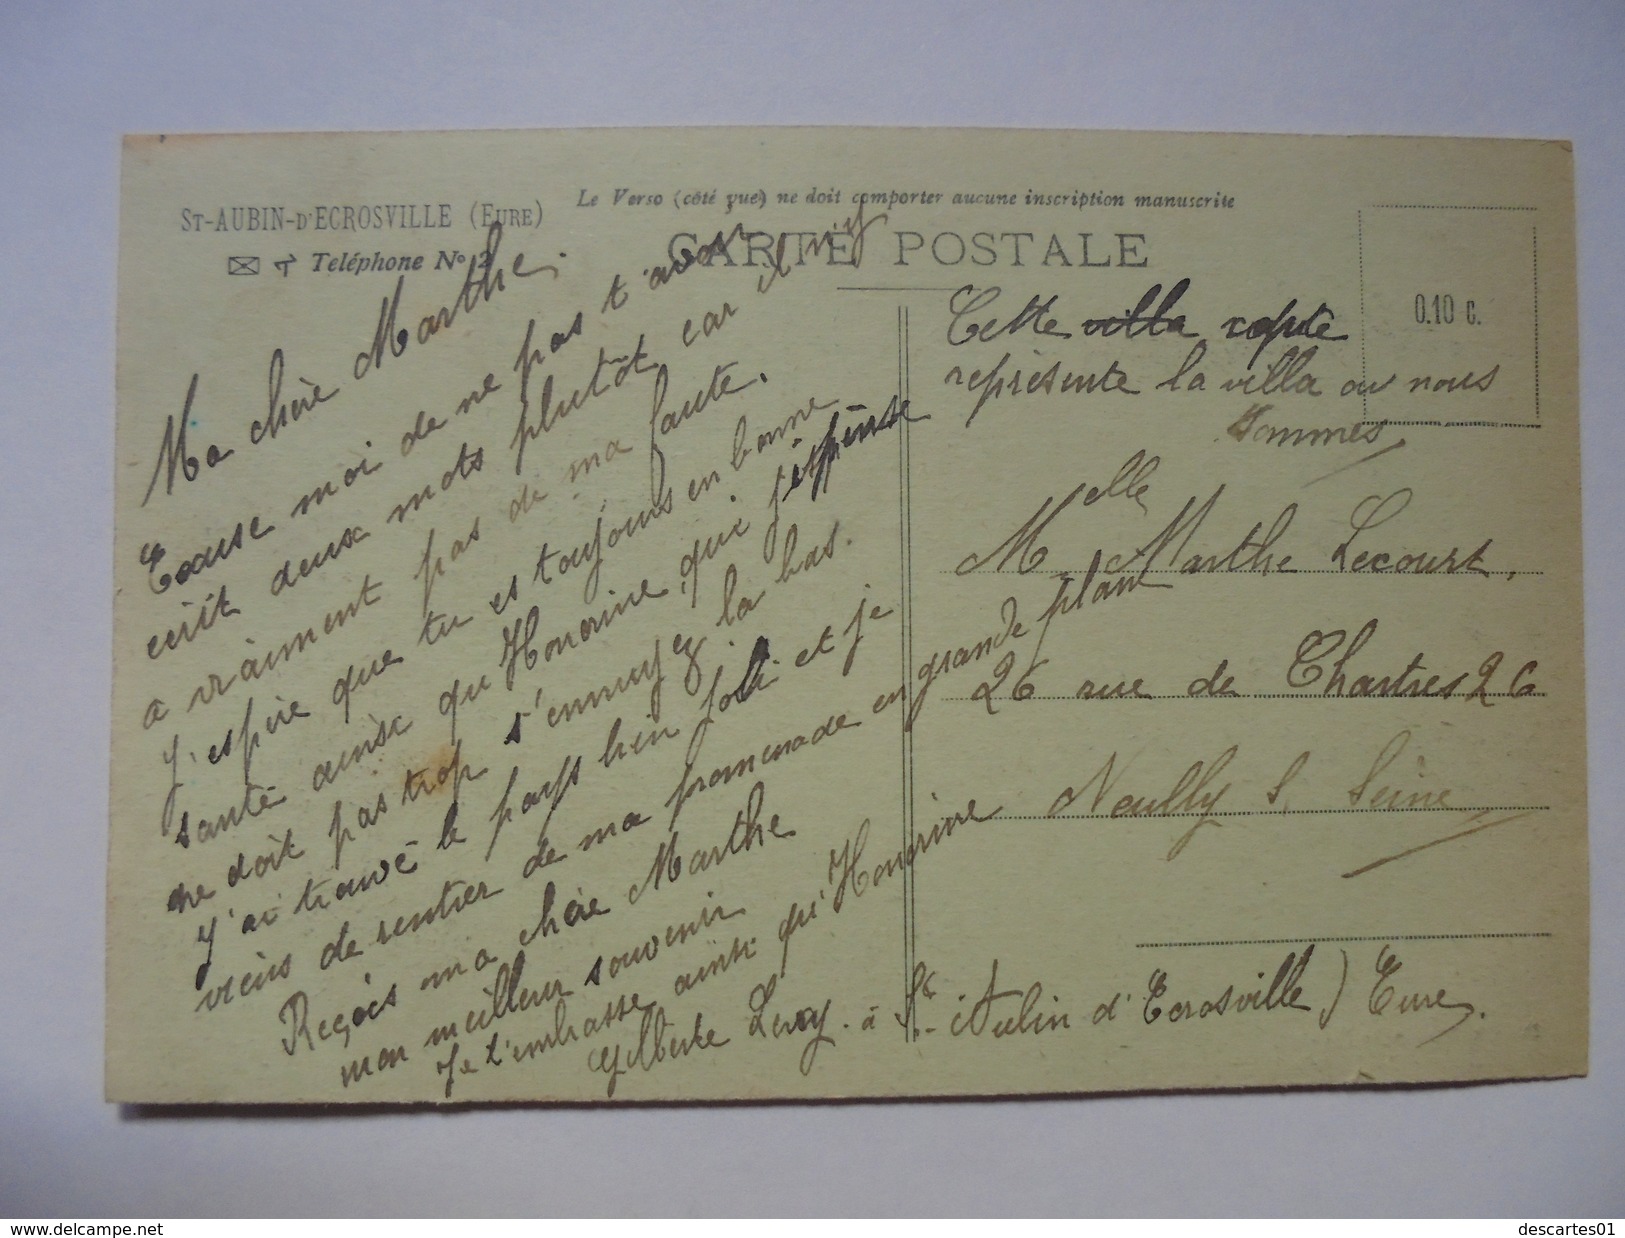 Le Verso (côté vue) ne doit comporter aucune inscription manuscrite
ST-AUBIN-D'ECROSVILLE (EURE)
Teléphone No 2
CARTE POSTALE
0.10 c.
Ma chère Marthe.
Excuse moi de ne pas t'avoir
écrit deux mots plutôt car il n'y
a vraiment pas de ma faute.
J'espère que tu es toujours en bonne
santé ainsi qu'Honorine, qui j'éspense
ne doit pas trop s'ennuyez la bas.
J'ai trouvé le pays bien joli et je
viens de rentrer de ma promenade en grande plaine
Reçois ma chère Marthe
mon meilleur souvenir
Je t'embrasse ainsi qu'Honorine
Gilberte Leroy. à St-Aubin d'Ecrosville) Eure.
Cette villa
représente la villa ou nous
sommes
Melle Marthe Lecourt,
26 rue de Chartres 26
Neuilly S. Seine
www.delcampe.net
descartes01